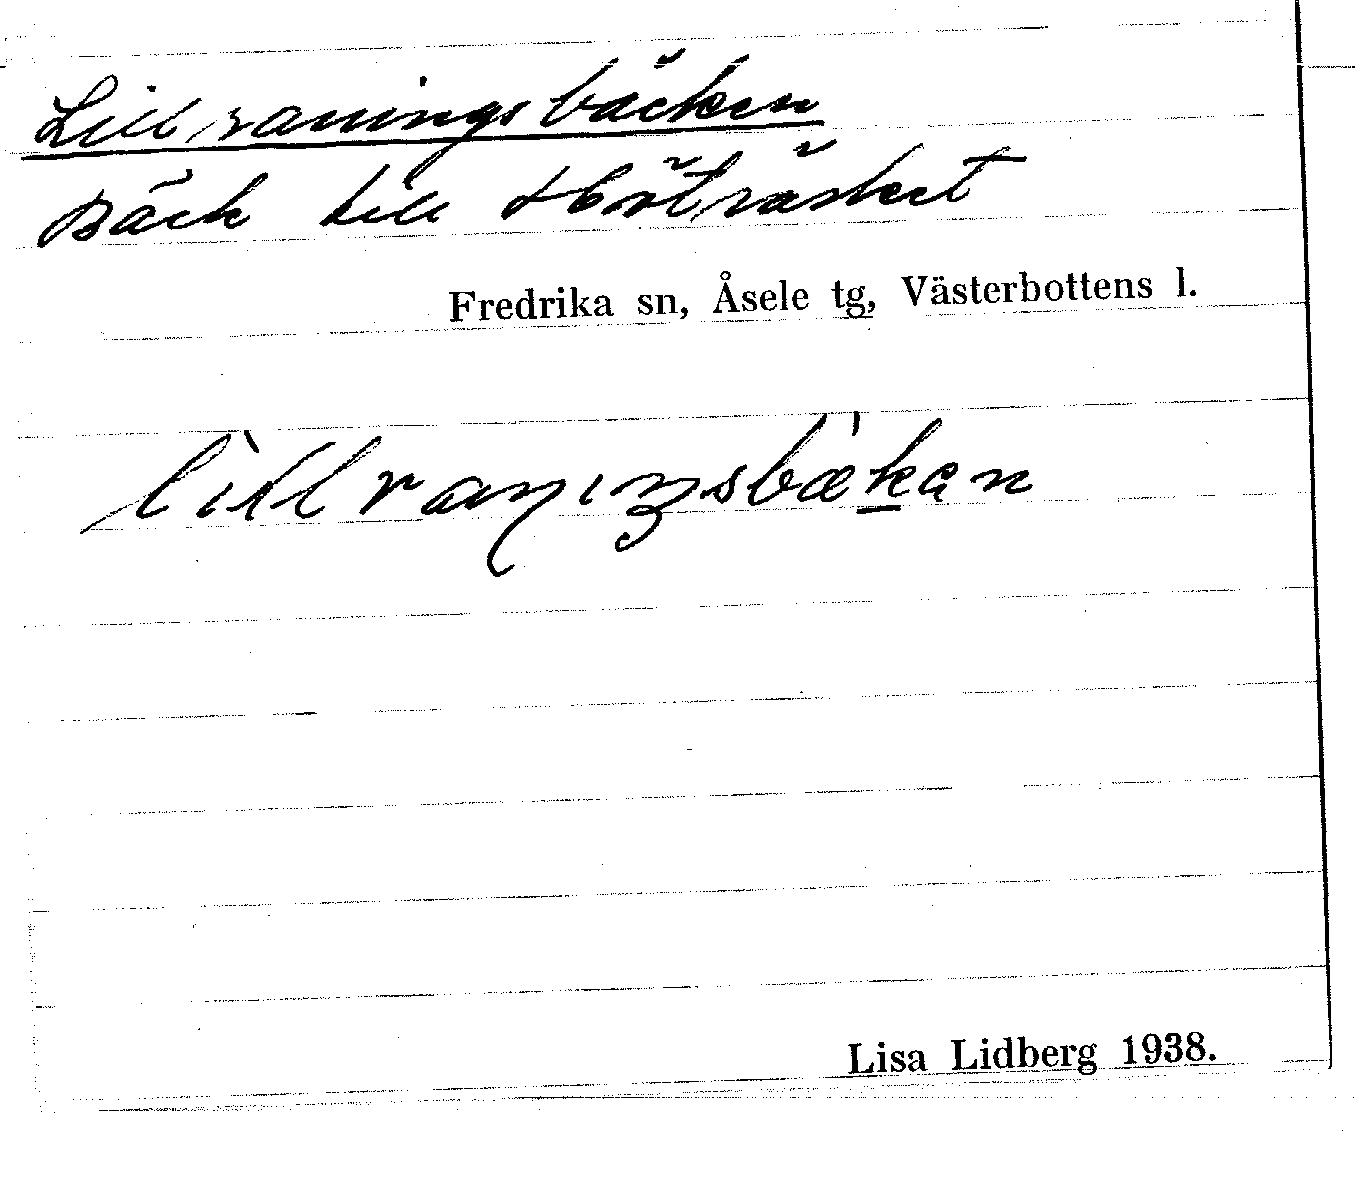 Lillraningsbäcken
Bäck till Höträsket
Fredrika sn, Åsele tg, Västerbottens l.
lìllraŋıŋsbækən
Lisa Lidberg 1938.